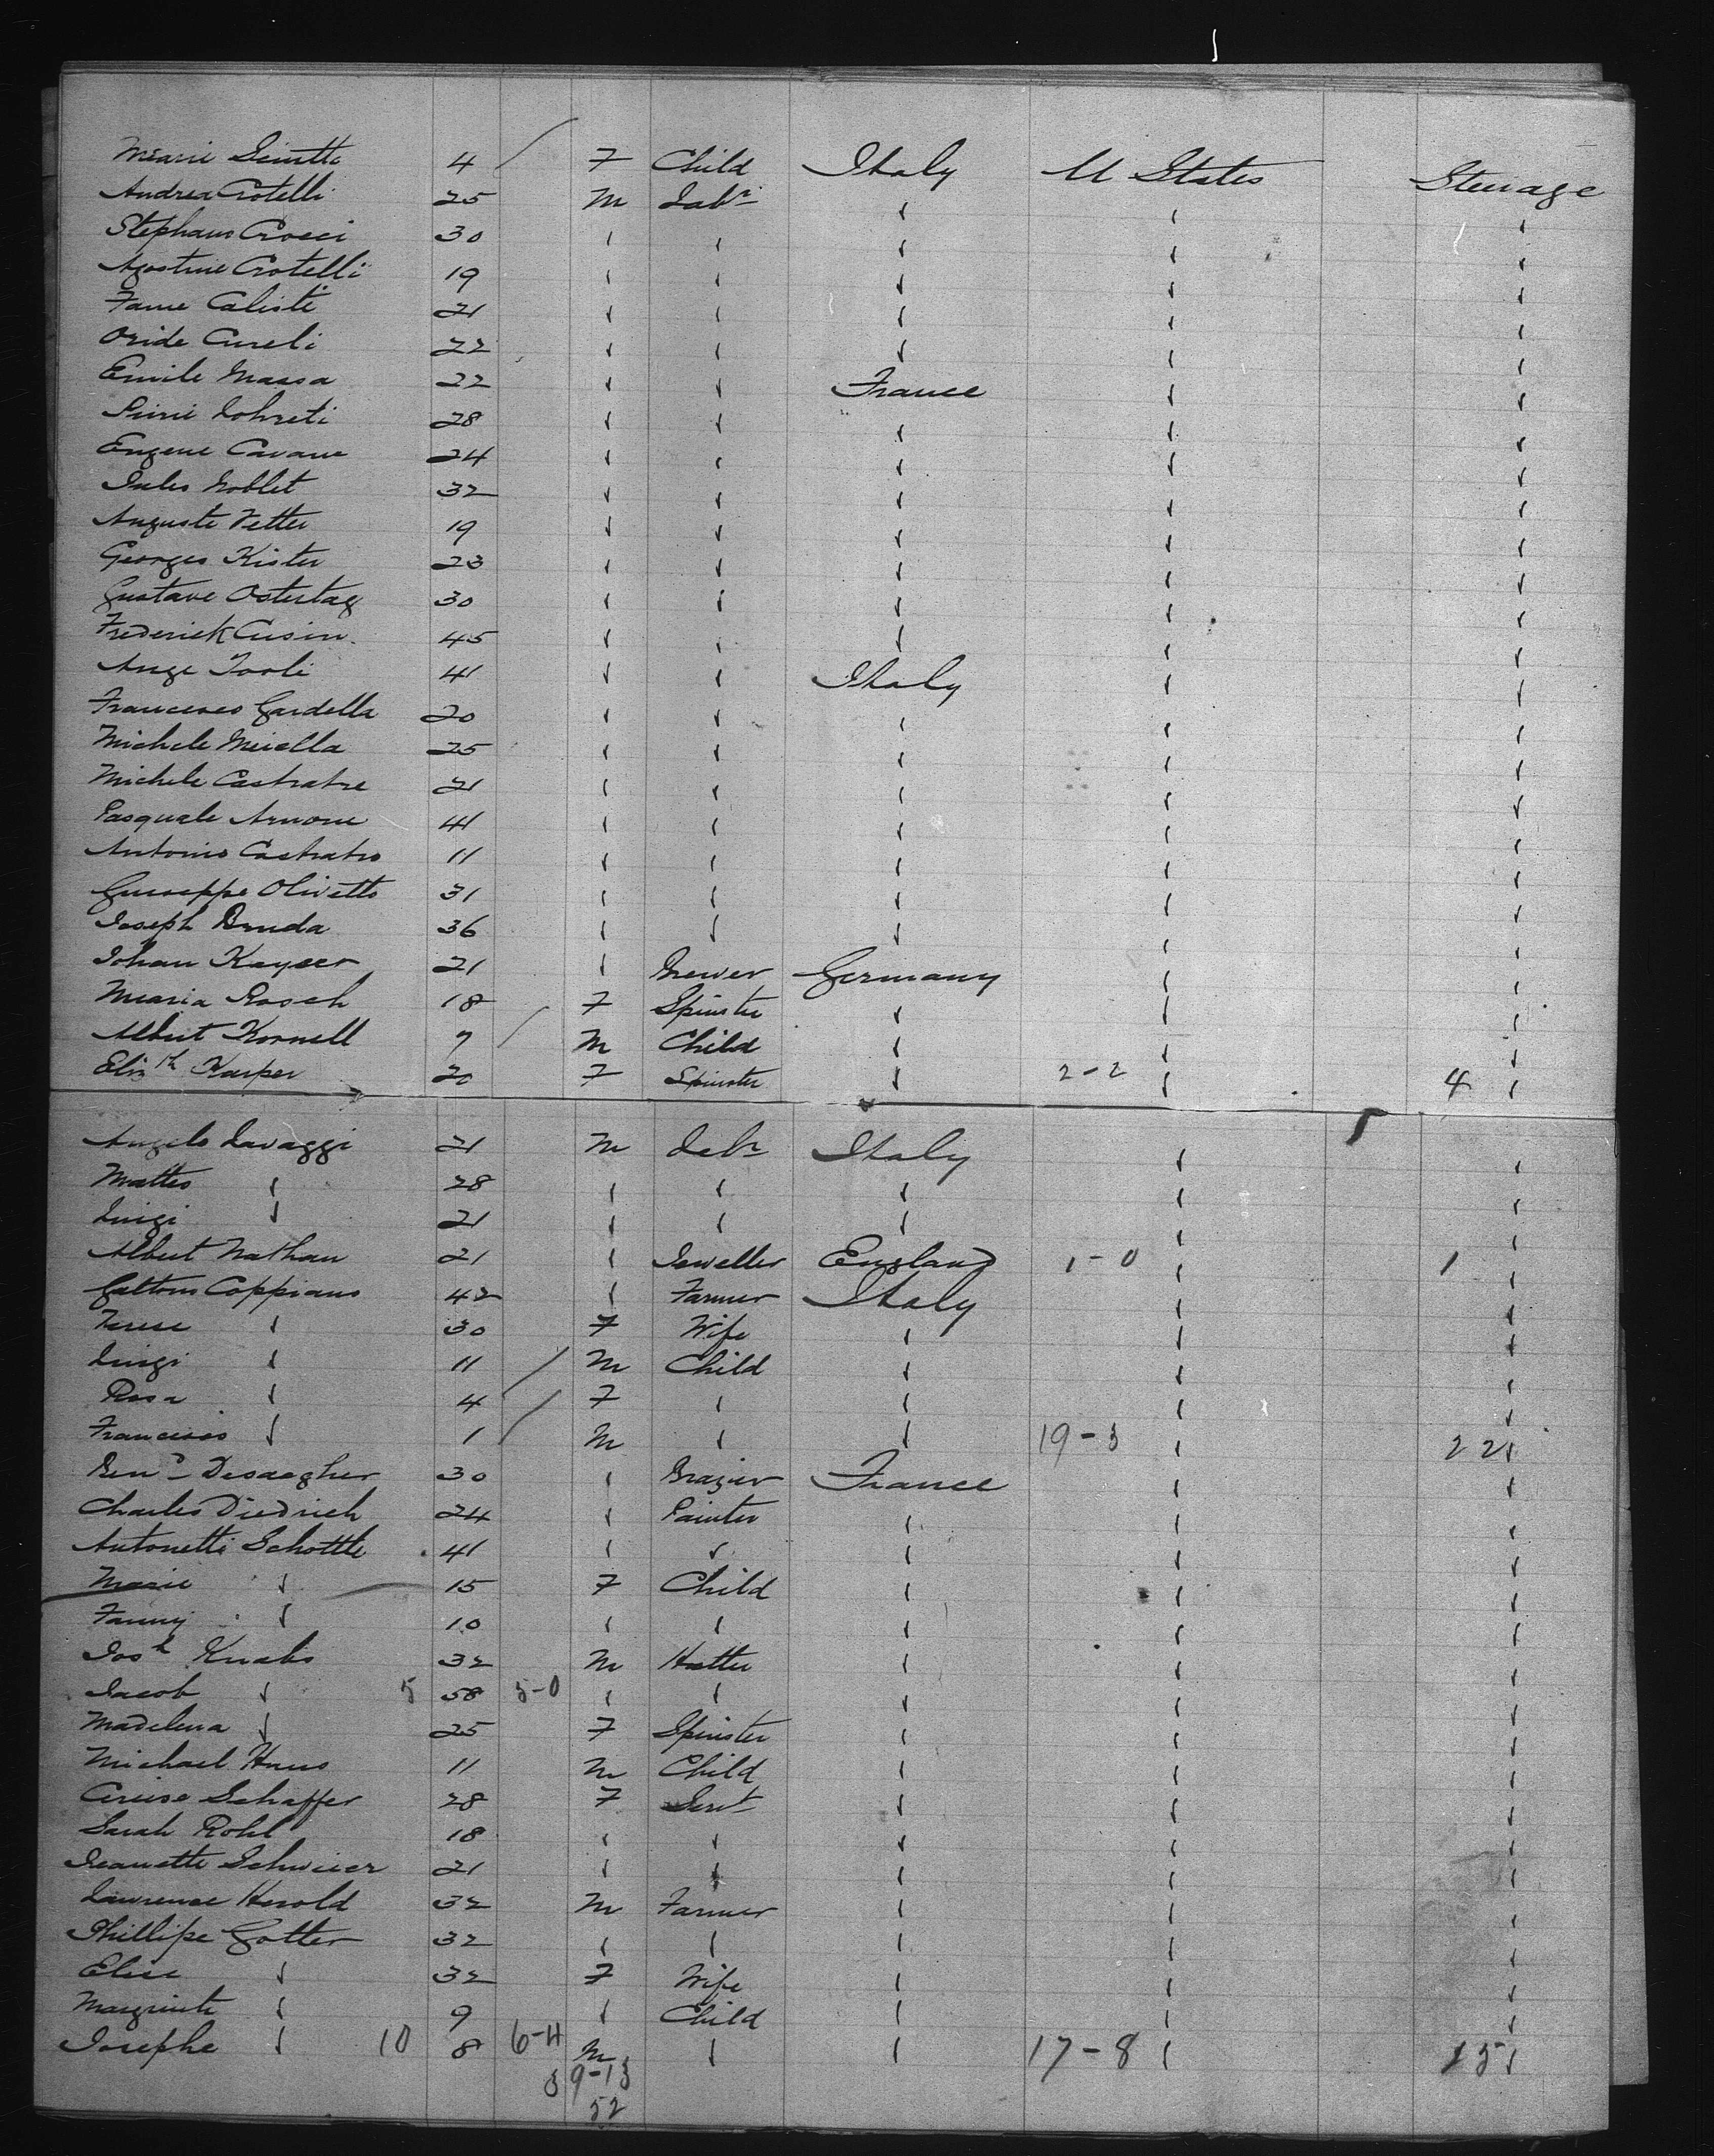 Marie 4 / F Child Italy U States Steerage
Andrea Crotelli 25 M Labr " " "
Stephano Crocci 30 " " " " "
Agostine Crotelli 19 " " " " "
Fame Caliste 21 " " " " "
Oride Cureli 22 " " " " "
Emile Massa 22 " " France " "
28 " " " " "
Eugene Cavane 24 " " " " "
Jules Noblet 32 " " " " "
Auguste Vetter 19 " " " " "
Georges Kister 23 " " " " "
Gustave Ostertag 30 " " " " "
Frederick Cusin 45 " " " " "
Ange 41 " " Italy " "
Francesco Gardella 20 " " " " "
Michele 25 " " " " "
Michele Castratre 21 " " " " "
Pasquale Arnone 41 " " " " "
Antonio Castratro 11 " " " " "
Guiseppe Olivetto 31 " " " " "
Joseph Bruda 36 " " " " "
Johan Kayser 21 " Brewer Germany " "
Maria Rosch 18 F Spinster " " "
Albert Kornell 7 / M Child " " "
Elizth Karper 20 F Spinster " 2-2 " 4 "
Angelo Lavaggi 21 M Labr Italy " "
Matteo " 28 " " " " "
Luigi " 21 " " " " "
Albert Nathan 21 " Jeweller England 1-0 " 1 "
Coppiano 42 " Farmer Italy " "
Terese " 30 F Wife " " "
Luigi " 11 / M Child " " "
Rosa " 4 / F " " " "
Francisco " 1 M " " 19-3 " 22 "
Desaegher 30 " Brazier France " "
Charles Diedrich 24 " Painter " " "
Antonetti Schottle 41 " " " " "
Marie " 15 F Child " " "
Fanny " 10 " " " " "
Josh Knabs 32 M Hatter " " "
Jacob " 5 58 5-0 " " " " "
Madelena " 25 F Spinster " " "
Michael Haus 11 M Child " " "
Schaffer 28 F Servt " " "
Sarah Rohl 18 " " " " "
Jeanette Schwiier 21 " " " " "
Lawrence Herold 32 M Farmer " " "
Phillipe Gotter 32 " " " " "
Elise " 32 F Wife " " "
Margriete " 9 " Child " " "
Josephe " 10 8 6-4 M " " 17-8 " 25 "
3 9-13
52